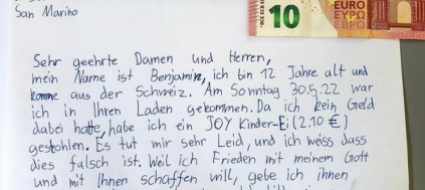 San Marino
10
EURO
ΕΥΡΩ
ЕВРО
Sehr geehrte Damen und Herren,
mein Name ist Benjamin, ich bin 12 Jahre alt und
komme aus der Schweiz. Am Sonntag 30.5.22 war
ich in Ihren Laden gekommen. Da ich kein Geld
dabei hatte, habe ich ein JOY Kinder-Ei (2.10 €)
gestohlen. Es tut mir sehr Leid, und ich weiss dass
dies falsch ist. Weil ich Frieden mit meinem Gott
und mit Ihnen schaffen will, gebe ich ihnen